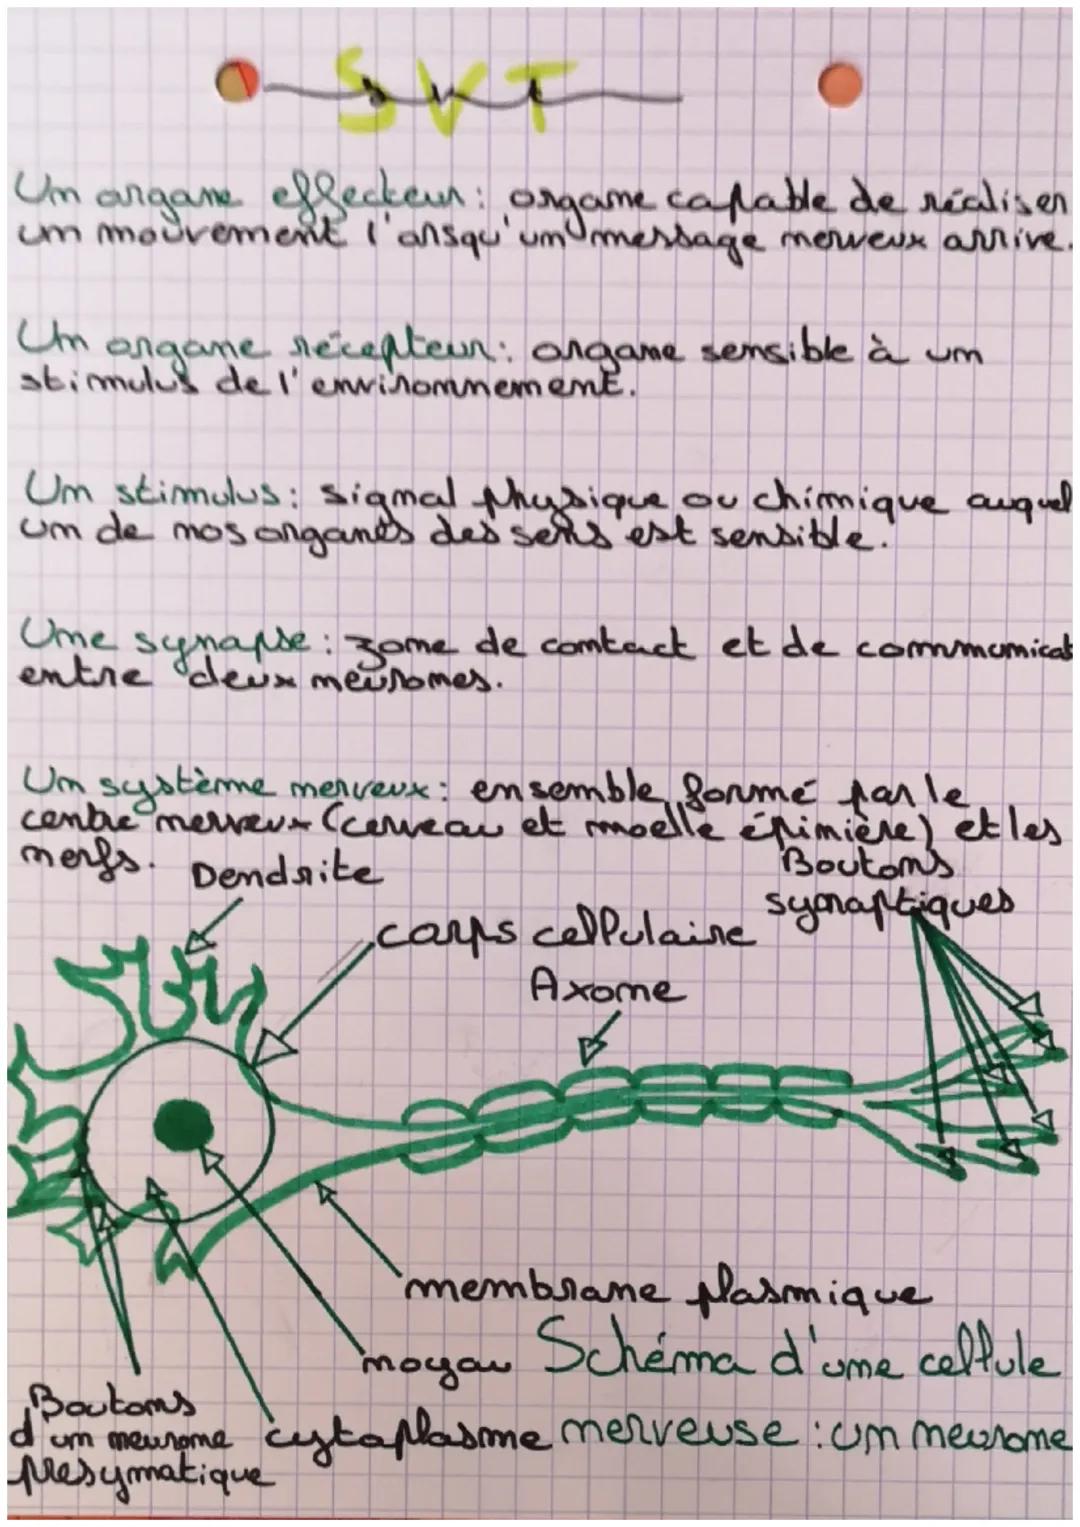 SVT
Un organe effecteur : organe capable de réaliser
un mouvement l'orsqu'un message nerveux arrive.
Un organe récepteur : organe sensible à un
stimulus de l'environnement.
Un stimulus : signal physique ou chimique auquel
un de nos organes des sens est sensible.
Une synapse : zone de contact et de communicat
entre deux neuronnes.
Un système nerveux : ensemble formé par le
centre nerveux (cerveau et moelle épinière) et les
nerfs.
Dendrite
Boutons
synaptiques
corps cellulaire
Axone
membrane plasmique
noyau
Schéma d'une cellule
nerveuse : un neurone
cytoplasme
Boutons
d'un neurone
présynatique